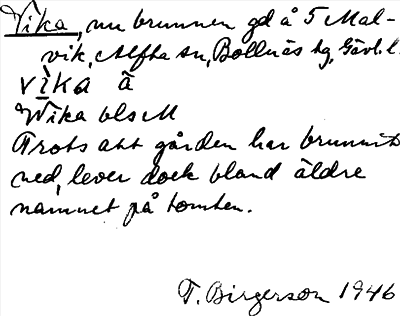 Vika, nu brunnen gd å 5 Mal-
vik, Alfta sn, Bollnäs tg, Gävl. l.
vìka ā
Wika bls M
Trots att gården har brunnit
ned, lever dock bland äldre
namnet på tomten.
T. Birgerson 1946